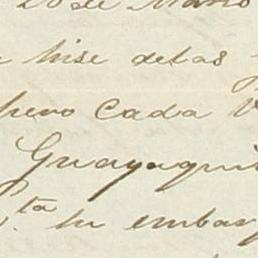 20 de Marzo
hise delas
pero Cada
Guayaqui
ta su embar